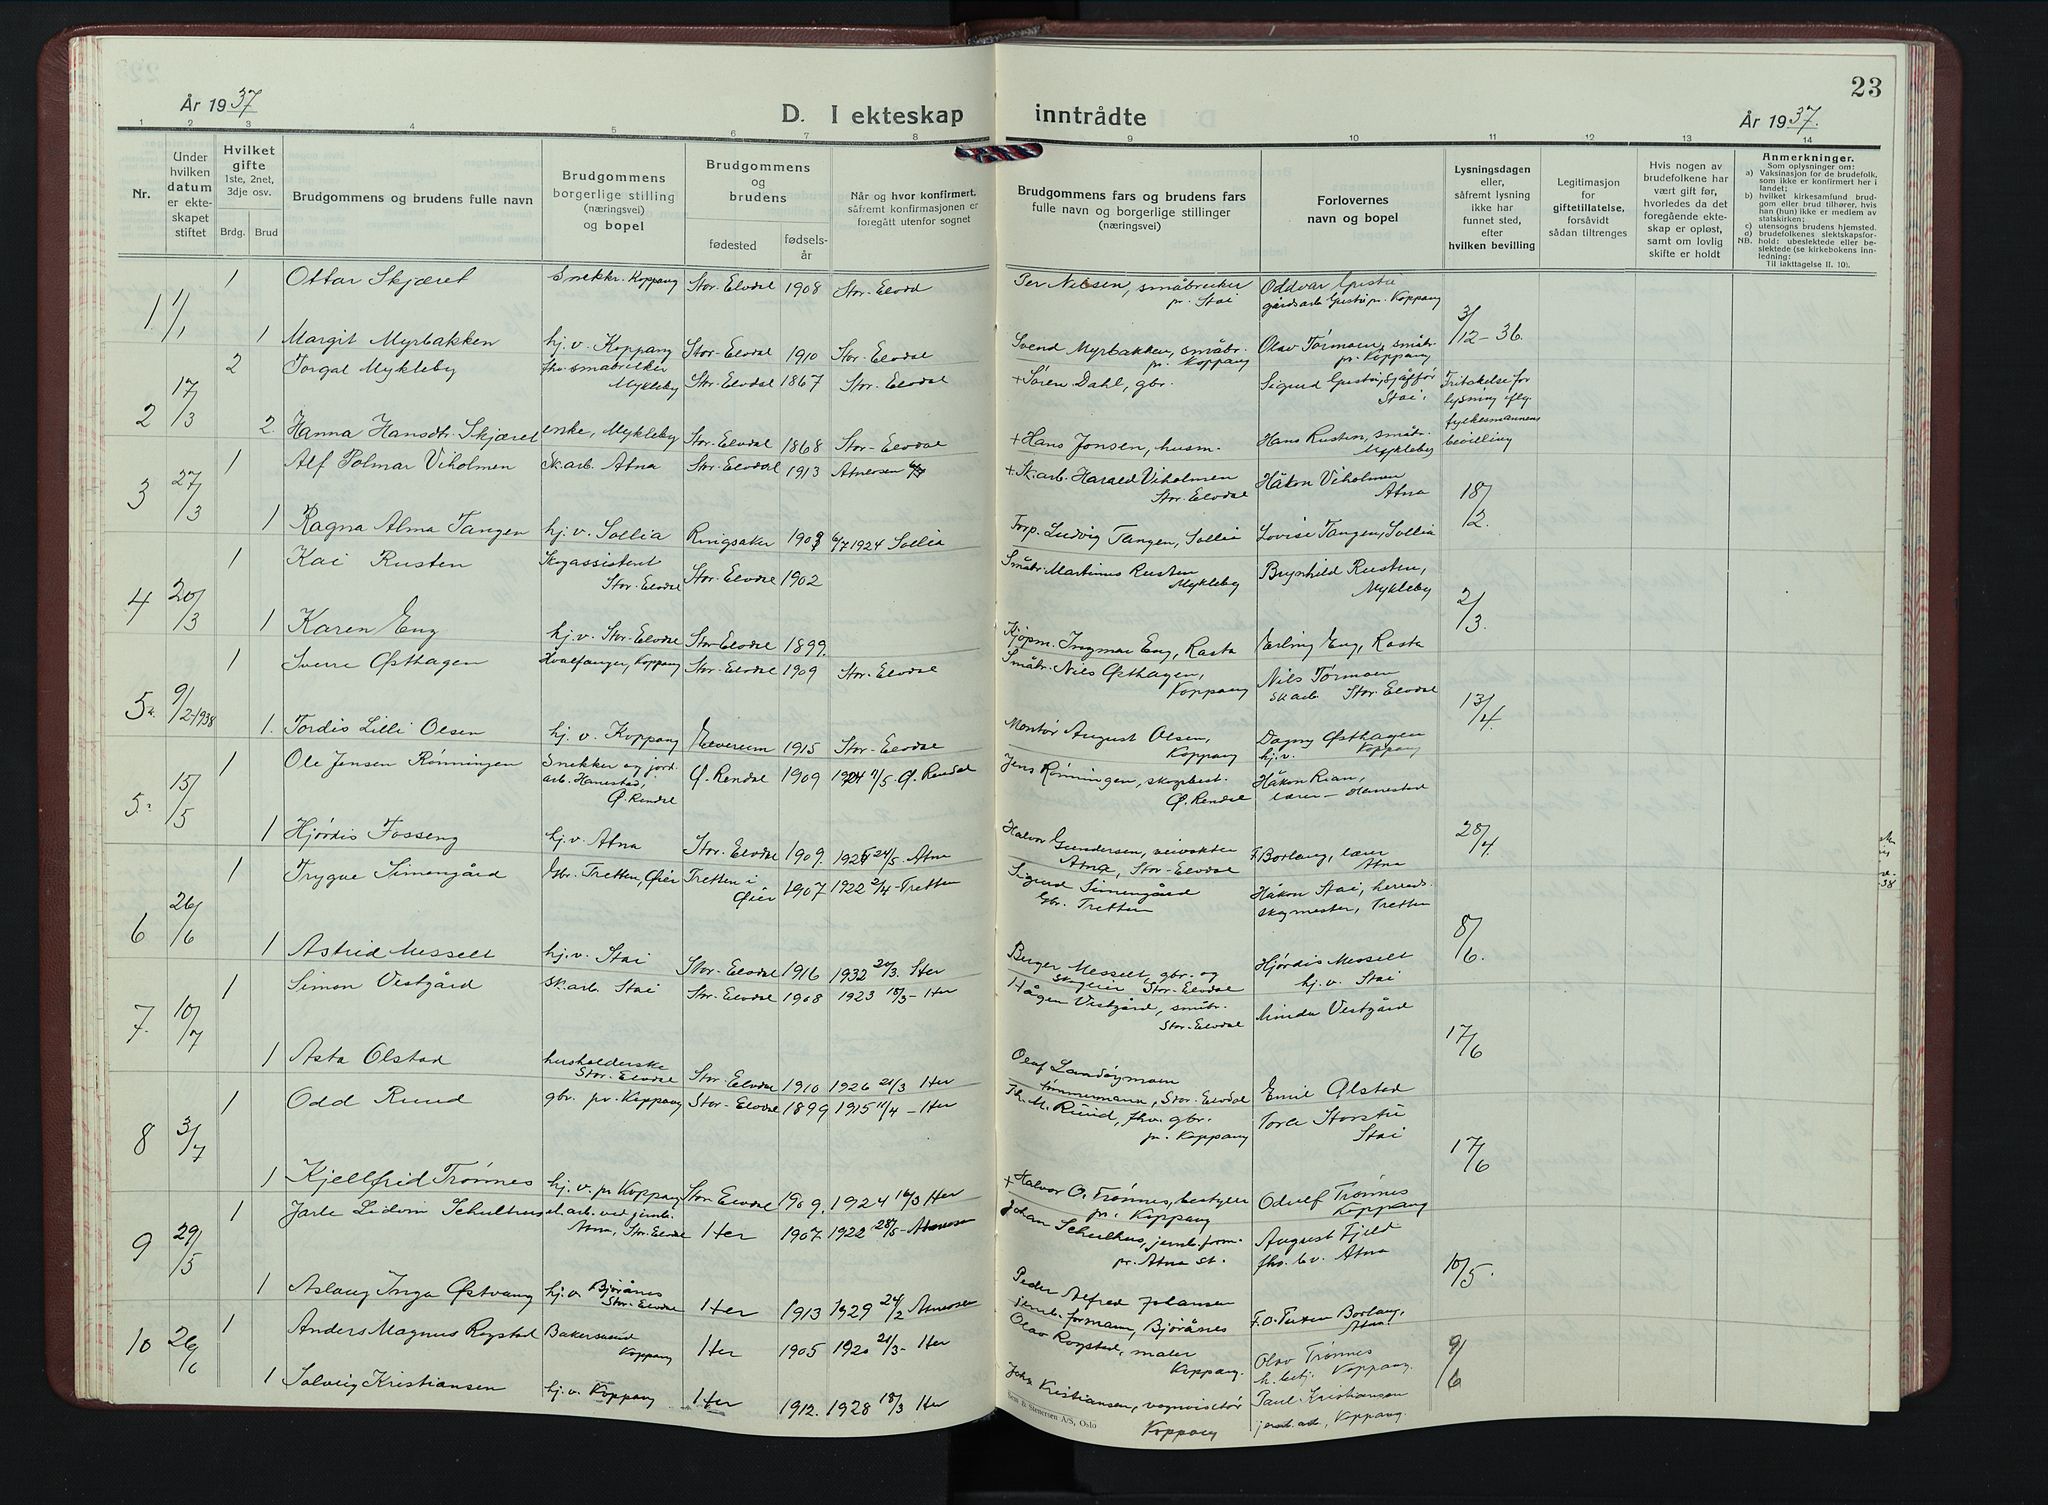 23
År 1937
D. I ekteskap inntrådte
År 1937.
1 2 3 4 5 6 7 8 9 10 11 12 13 14
Nr.
Under hvilken datum er ekteskapet stiftet
Hvilket gifte 1ste, 2net, 3dje osv.
Brdg. Brud
Brudgommens og brudens fulle navn
Brudgommens borgerlige stilling (næringsvei) og bopel
Brudgommens og brudens
fødested
fødselsår
Når og hvor konfirmert, såfremt konfirmasjonen er foregått utenfor sognet
Brudgommens fars og brudens fars fulle navn og borgerlige stillinger (næringsvei)
Forlovernes navn og bopel
Lysningsdagen eller, såfremt lysning ikke har funnet sted, efter hvilken bevilling
Legitimasjon for giftetillatelse, forsåvidt sådan tiltrenges
Hvis nogen av brudefolkene har vært gift før, hvorledes da det foregående ekteskap er opløst, samt om lovlig skifte er holdt
Anmerkninger.
Som oplysninger om:
a) Vaksinasjon for de brudefolk, som ikke er konfirmert her i landet;
b) hvilket kirkesamfund brudgom eller brud tilhører, hvis han (hun) ikke er medlem av statskirken;
c) utensogns brudens hjemsted.
d) brudefolkenes slektskapsforhold: ubeslektede eller beslektede (se kirkebokens innledning:
NB.
Til iakttagelse II. 10).
1 1/1 1 Ottar Skjæret Snekker. Koppang Stor-Elvdal 1908 Stor-Elvd Per Nilsen, småbruker pr. Stai Oddvar
gårdsarb. pr. Koppang 3/12-36.
1 Margit Myrbakken hj.v. Koppang Stor-Elvdal 1910 Stor-Elvdal Svend Myrbakken, småbr. pr. Koppang Olav Tørmoen, småbr. pr. Koppang
2 17/3 2 Torgal Mykleby fhv. småbruker Mykleby Stor-Elvdal 1867 Stor-Elvdal + Søren Dahl, gbr. Sigurd sjåffør Stai. Fritakelse for lysning iflg. fylkesmannens bevilling
2. Hanna Hansdtr. Skjæret enke, Mykleby Stor-Elvdal 1868 Stor-Elvdal + Hans Jonsen, husm. Hans Rusten, småbr. Mykleby
3 27/3 1 Alf Polmar Viholmen Sk.arb. Atna Stor-Elvdal 1913 Atnosen + Sk.arb. Harald Viholmen Stor-Elvdal Håkon Viholmen Atna 18/2.
1 Ragna Alma Tangen hj.v. Sollia Ringsaker 1909 6/7 1924 Sollia Forp. Ludvig Tangen, Sollia Lovise Tangen, Sollia
4 20/3 1 Kai Rusten Skogassistent Stor-Elvdal Stor-Elvdal 1902 Småbr. Martinus Rusten Mykleby Brynhild Rusten, Mykleby 2/3.
1 Karen Eng hj.v. Stor-Elvdal Stor-Elvdal 1899. Kjøpm. Ingmar Eng, Rasta Erling Eng, Rasta
5a. 9/2-1938 1 Sverre Østhagen Hvalfanger, Koppang Stor-Elvdal 1909 Stor-Elvdal Småbr. Nils Østhagen, Koppang Nils Tørmoen sk.arb. Stor-Elvdal 13/4.
1. Tordis Lilli Olsen hj.v. Koppang Elverum 1915 Stor-Elvdal Montør August Olsen, Koppang Dagny Østhagen hj.v. Koppang
5. 15/5 1 Ole Jensen Rønningen Snekker og jord.arb. Hanestad, Ø. Rendal Ø. Rendal 1909 1924 11/5 Ø. Rendal Jens Rønningen, skogbest. Ø. Rendal Håkon Rian, lærer - Hanestad 28/4.
1 Hjørdis Fosseng hj.v. Atna Stor-Elvdal 1909. 1925 24/5 - Atna Halvor Gundersen, veivokter Atna, Stor-Elvdal F. Borlaug, lærer Atna
6 26/6 1 Trygve Simengård Gbr. Tretten, Øier Tretten i Øier 1907 1922 2/4 - Tretten Sigurd Simengård Gbr. Tretten Håkon Stai, herredsskogmester, Tretten 8/6.
1 Astrid Messelt hj.v. Stai Stor-Elvdal 1916 1932 20/3. Her Birger Messelt, gbr. og skogeier Stor-Elvdal Hjørdis Messelt hj.v. Stai
7. 10/7 1 Simon Vestgård sk.arb. Stai Stor-Elvdal 1908 1923 18/3 - Her Hågen Vestgård, småbr. Stor-Elvdal Minda Vestgård 17/6
1 Asta Olstad husholderske Stor-Elvdal Stor-Elvdal 1910 1926 21/3 Her Olaf Landøymoen tømmermann, Stor-Elvdal Emil Olstad
8 3/7 1 Odd Ruud gbr. pr. Koppang Stor-Elvdal 1899 1915 11/4 - Her Th. M. Ruud, fhv. gbr. pr. Koppang Tore Storstu Stai 17/6
1 Kjellfrid Trønnes hj.v. pr Koppang Stor-Elvdal 1909. 1924 16/3 Her + Halvor O. Trønnes, bestyrer pr. Koppang Odulf Trønnes Koppang
9 29/5 1 Jarle Lidvin Schulhus el.arb. ved jernb. Atna, Stor-Elvdal Her 1907. 1922 28/5 - Atnosen Johan Schulhus, jernb.form. pr. Atna st. August Fjeld fhv. bv. Atna 10/5.
1 Aslaug Inga Østvang hj.v. Bjørånes Stor-Elvdal Her 1913 1929 24/2 Atnosen Peder Alfred Johansen jernb.formann, Bjørånes F.O. Borlaug, Atna
10 26/6 1 Anders Magnus Rogstad Bakersvend Koppang Her 1905 1920 21/3 - Her Olav Rogstad, maler Koppang. Olav Trønnes h.betj. Koppang. 9/6
1 Solveig Kristiansen hj.v. Koppang Her 1912. 1928 18/3 Her John Kristiansen, vognvisitør Koppang Paul Kristiansen jernb.arb., Koppang.
Sem & Stenersen A/S, Oslo